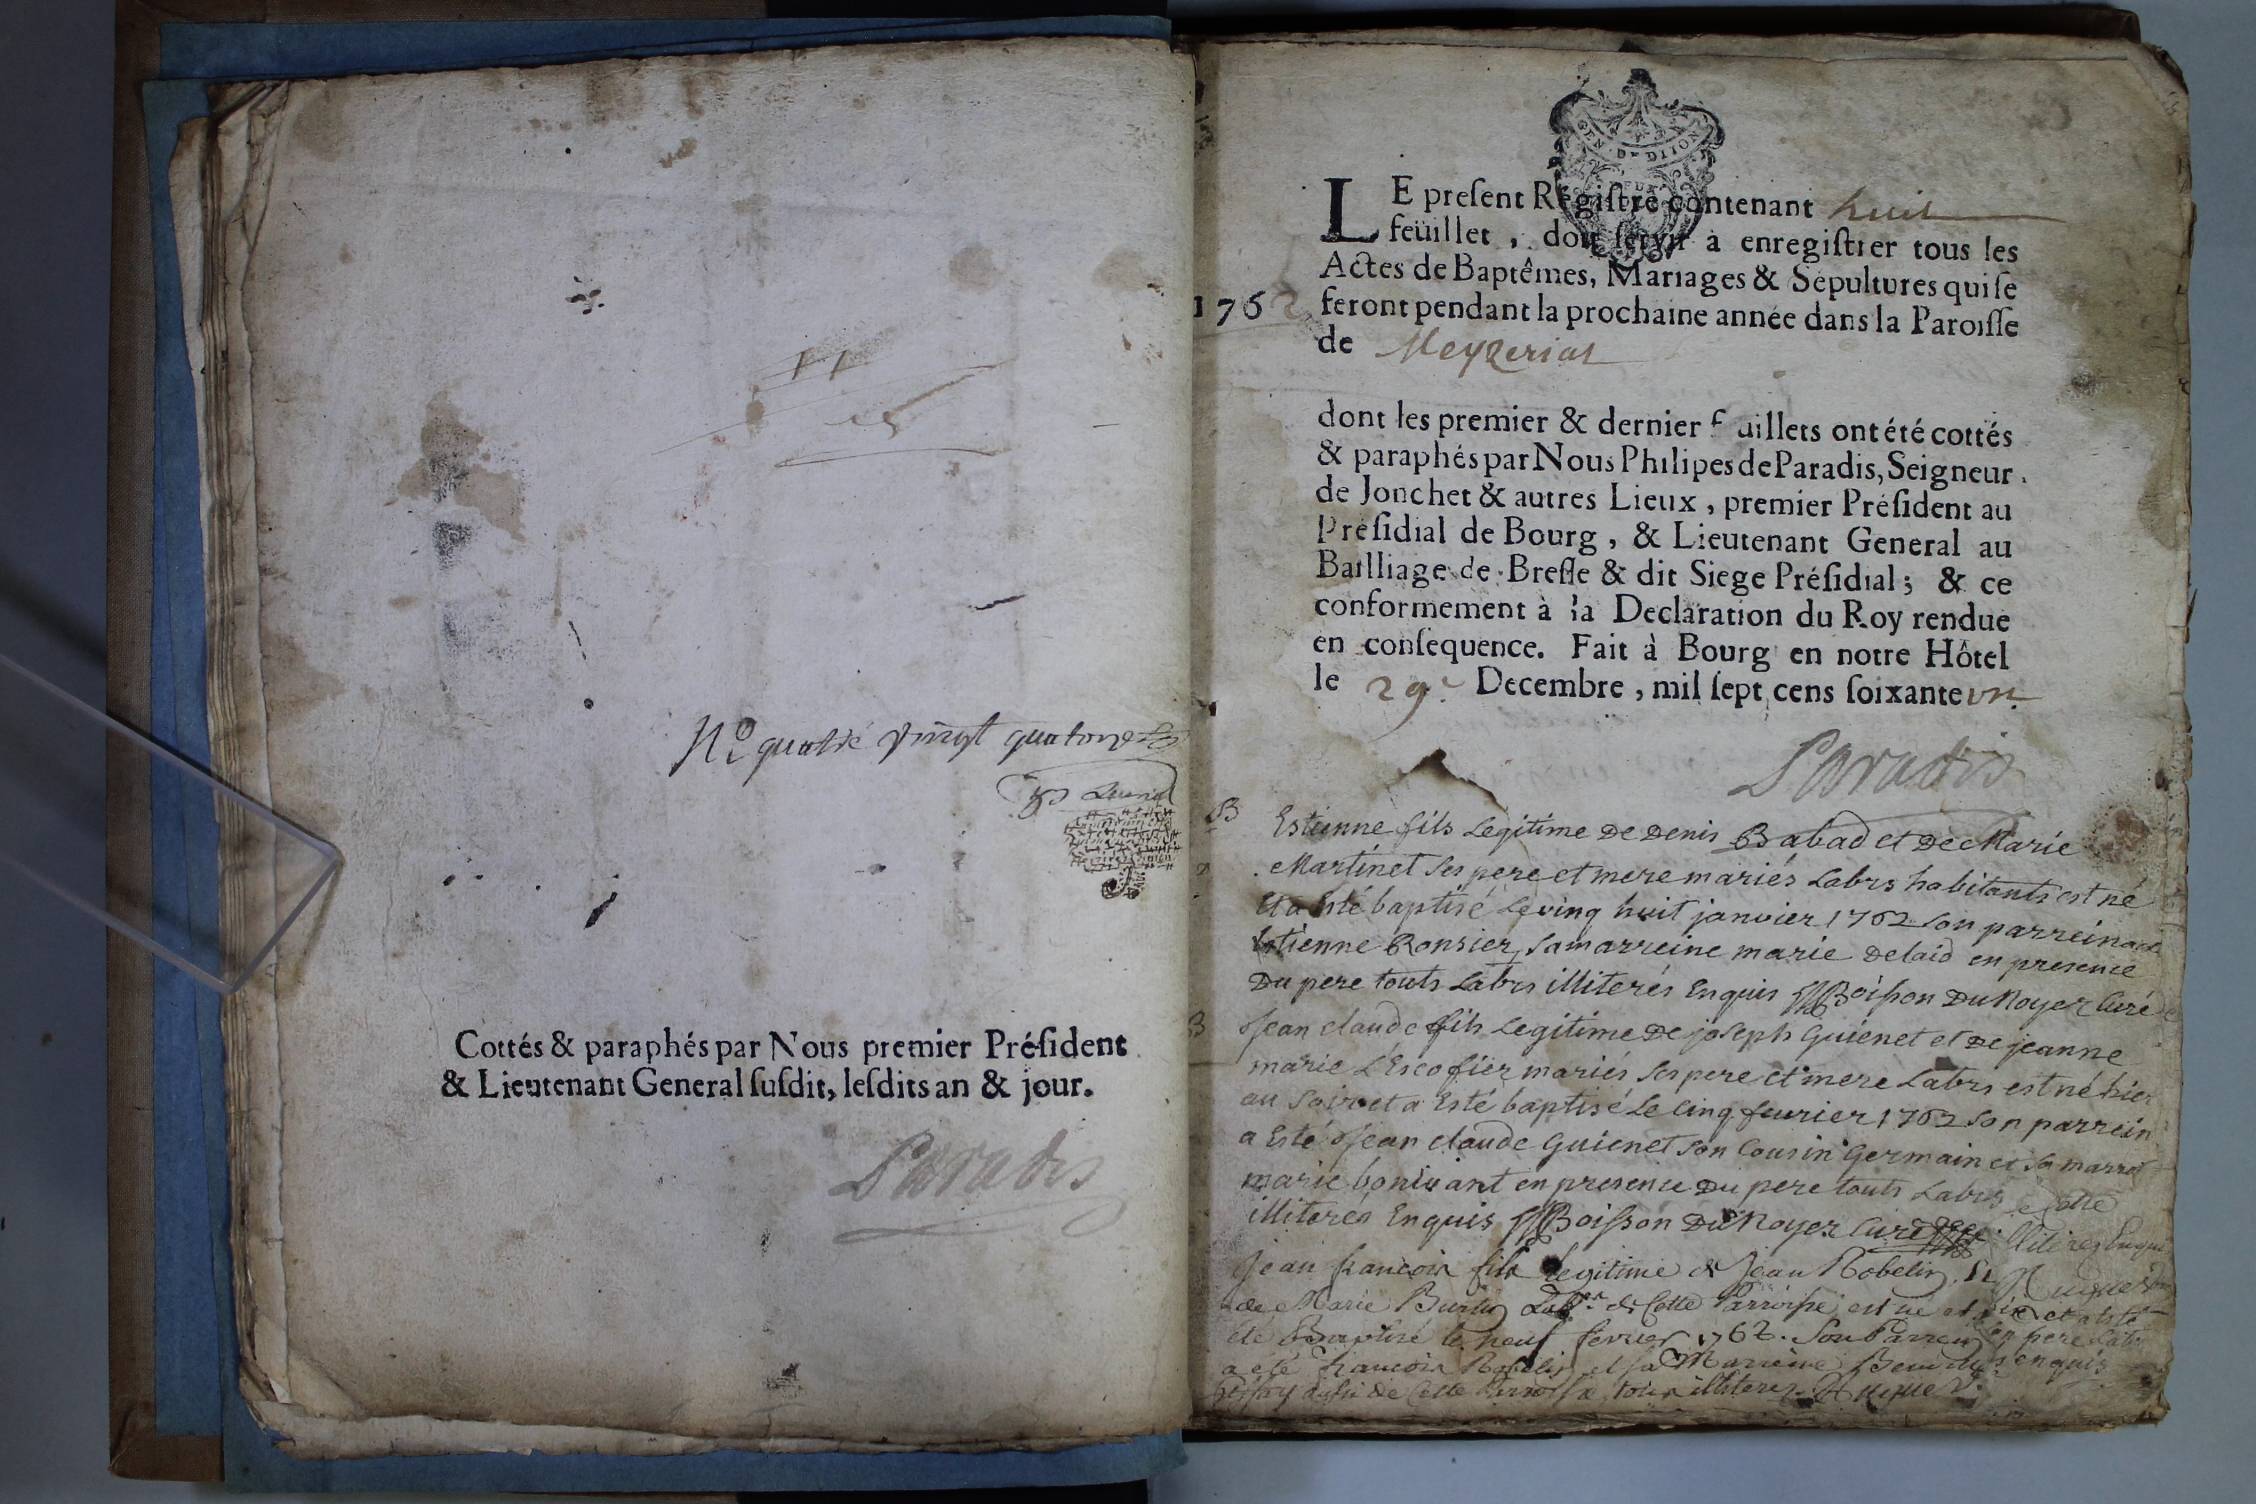 Nº quatre vingt quatorze
Cottés & paraphés par Nous premier Préſident
& Lieutenant General ſuſdit, leſdits an & jour.
Paradis
GEN. DE DIJON
LE preſent Regiſtre contenant huit
feüillet , doit ſervir à enregiſtrer tous les
Actes de Baptêmes, Mariages & Sepultures qui ſe
1762 feront pendant la prochaine année dans la Paroiſſe
de Meyzeriat
dont les premier & dernier f uillets ont été cottés
& paraphés par Nous Philipes de Paradis, Seigneur
de Jonchet & autres Lieux , premier Préſident au
Préſidial de Bourg , & Lieutenant General au
Bailliage de Breſſe & dit Siege Préſidial ; & ce
conformement à la Declaration du Roy rendue
en conſequence. Fait à Bourg en notre Hôtel
le 29e Decembre , mil ſept cens ſoixante un
Paradis
B Estienne fils Legitime De Denis Babad et De Marie
Martinet ses pere et mere mariés Labrs habitants est né
et a Esté baptisé Le vinq huit janvier 1762 son parrein
Estienne Ronsier, sa marreine marie Delaid en presence
Du pere touts Labrs illiterés Enquis Boisson Du Noyer Curé
B Jean claude fils Legitime De joseph Guienet et De jeanne
marie L'Escofier mariés ses pere et mere Labrs est né hier
au soir et a Esté baptisé Le Cinq fevrier 1762 son parrein
a Esté Jean claude Guienet son Cousin Germain et sa marrei
marie bonivant en presence Du pere touts Labrs
illiterés Enquis Boisson Du Noyer Curé
Jean francois fils legitime de Jean Robelin et
de Marie Burtin de Cette Parroisse est né et
été Baptisé le neuf fevrier 1762. Son Parrein
a été francois Robelin et sa Marreine
aussi de Cette Parroisse tous illiterez